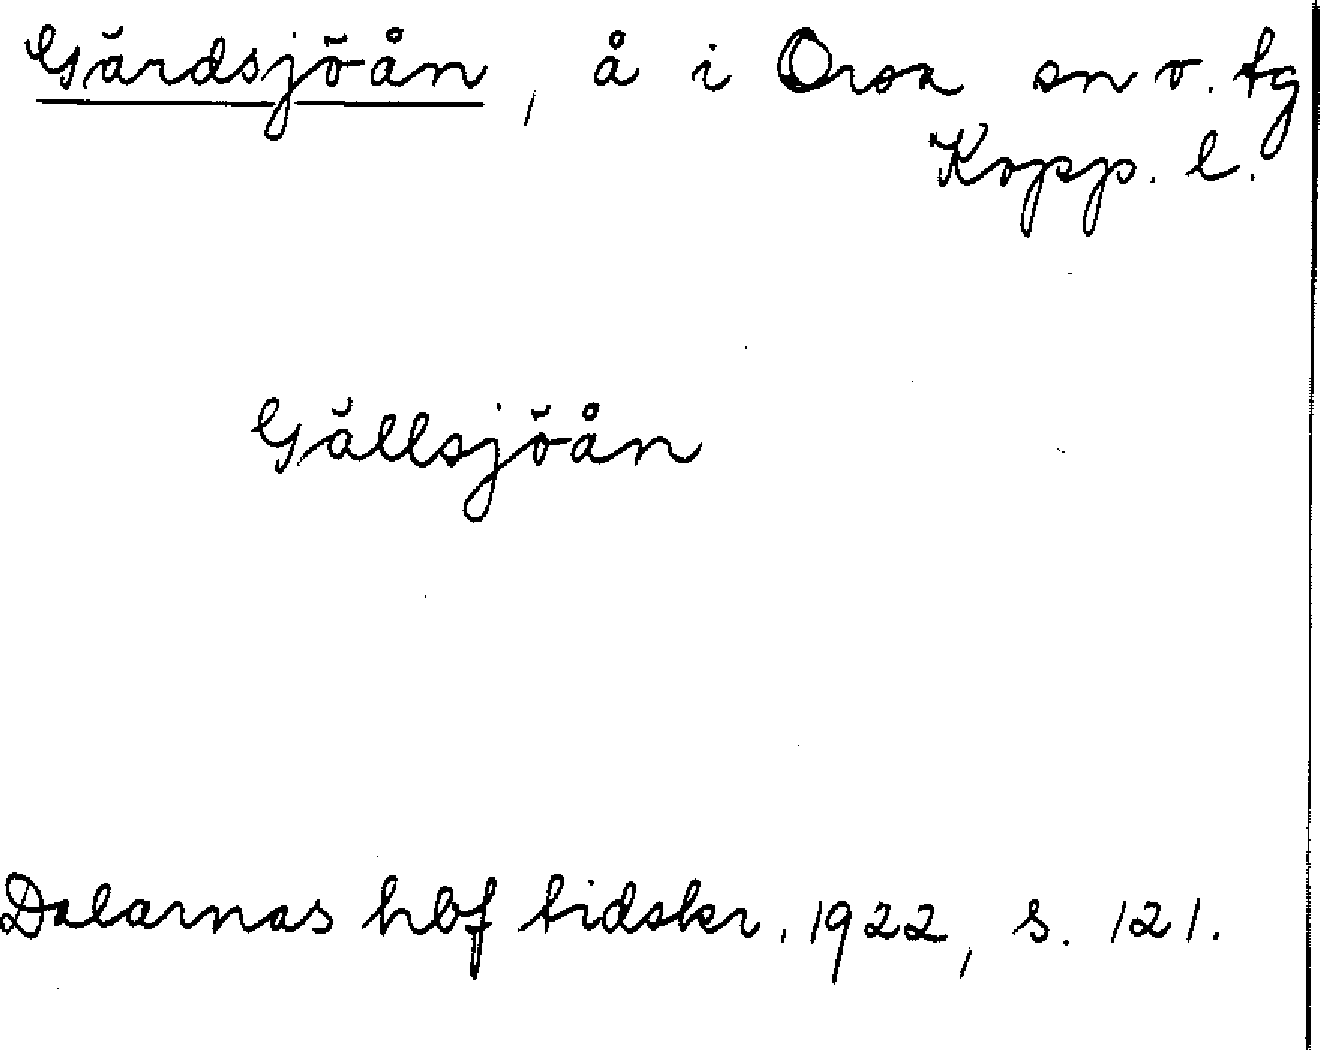 Gärdsjöån, å i Orsa sn v. tg
Kopp. l.
Gällsjöån
Dalarnas hbf tidskr. 1922, s. 121.